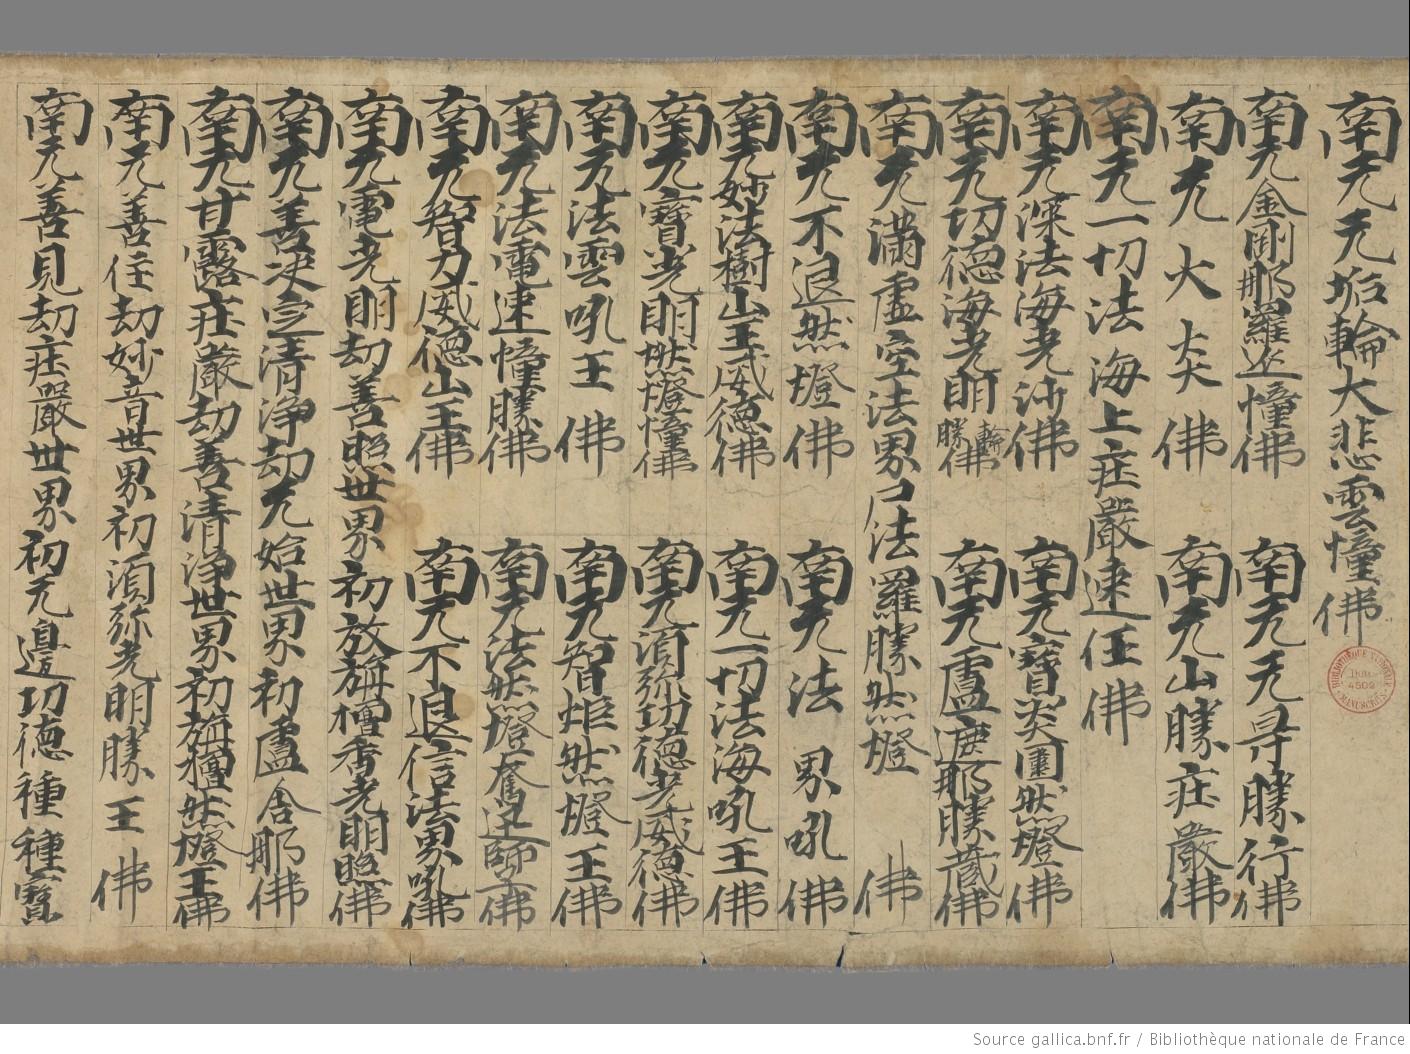 南无无垢輪大悲雲憧佛
南无金剛那羅延憧佛 南无无㝵勝行佛
南无大炎佛 南无山勝庄嚴佛
南无一切法海上庄嚴速任佛
南无深法海光沙佛 南无寶炎圍然燈佛
南无功德海光明輪勝佛 南无盧遮那勝藏佛
南无滿虛空法界尸法羅勝然燈佛
南无不退然燈佛 南无法界吼佛
南无妙法樹山王威德佛 南无一切法海吼王佛
南无寶光明然燈憧佛 南无須弥功德光威德佛
南无法雲吼王佛 南无智炬然燈王佛
南无法電速憧勝佛 南无法然燈奮迅師子佛
南无智力威德山王佛 南无不退信法界吼佛
南无電光明劫善照世界初放旃檀香光明照佛
南无善決定清淨劫无始世界初盧舍那佛
南无甘露庄嚴劫善清淨世界初旃檀然燈王佛
南无善住劫妙音世界初須弥光明勝王佛
南无善見劫庄嚴世界初无邊功德種種寶
BIBLIOTHÈQUE NATIONALE
4509
MANUSCRITS
Source gallica.bnf.fr / Bibliothèque nationale de France